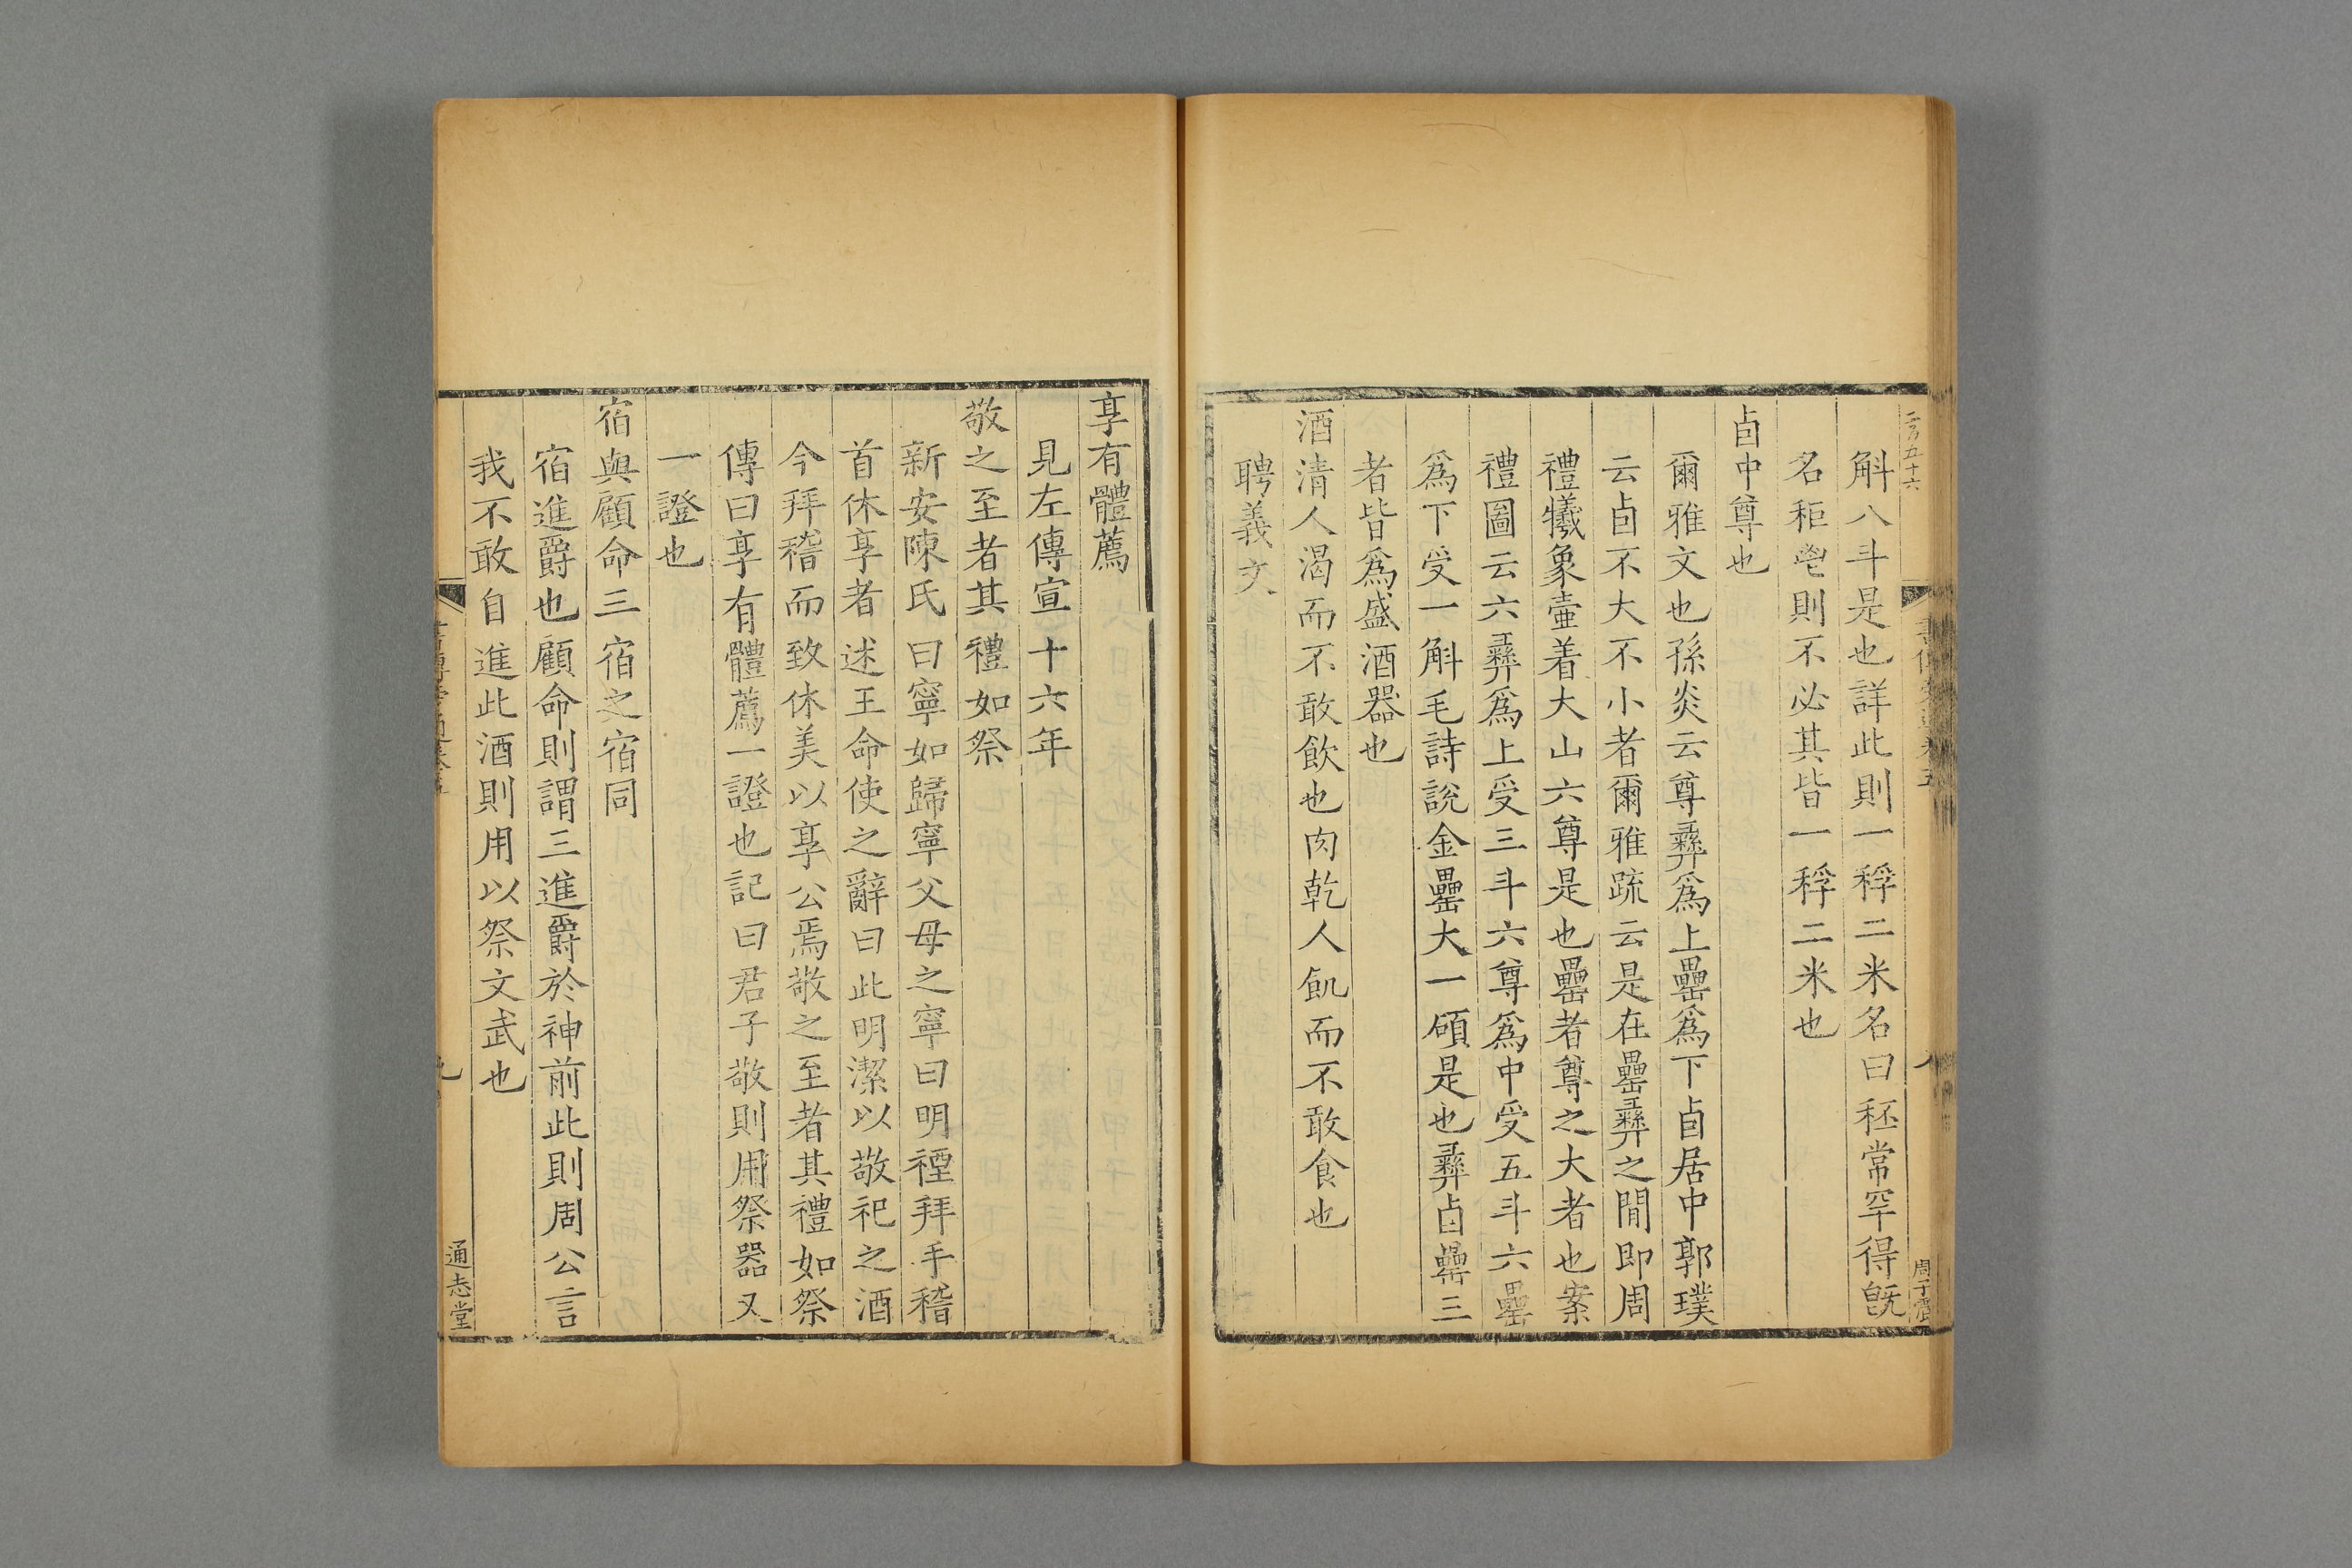 斛八斗是也詳此則一稃二米名曰秠常罕得旣
名秬鬯則不必其皆一稃二米也
卣中尊也
爾雅文也孫炎云尊彝爲上罍爲下卣居中郭璞
云卣不大不小者爾雅疏云是在罍彝之閒即周
禮犧象壷着大山六尊是也罍者尊之大者也案
禮圖云六彝爲上受三斗六尊爲中受五斗六罍
爲下受一斛毛詩說金罍大一碩是也彝卣罍三
者皆爲盛酒器也
酒清人渴而不敢飲也肉乾人飢而不敢食也
聘義文
八
享有體薦
見左傳宣十六年
敬之至者其禮如祭
新安陳氏曰寧如歸寧父母之寧曰明禋拜手稽
首休享者述王命使之辭曰此明潔以敬祀之酒
今拜稽而致休美以享公焉敬之至者其禮如祭
傳曰享有體薦一證也記曰君子敬則用祭器又
一證也
宿與顧命三宿之宿同
宿進爵也顧命則謂三進爵於神前此則周公言
我不敢自進此酒則用以祭文武也
通志堂